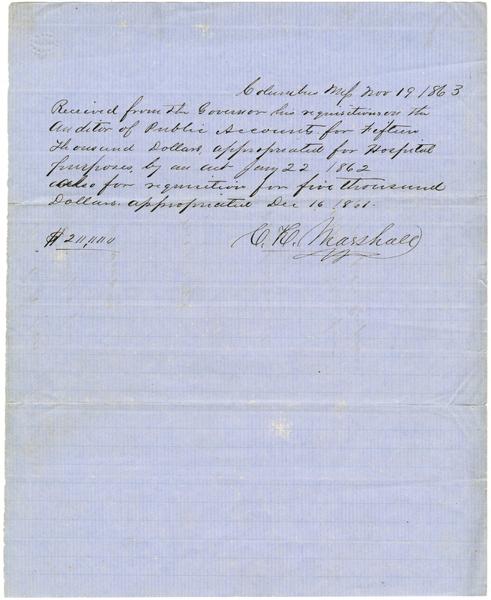 Columbus Mi Nov 19 1863
Received from the Governor his requisition on the
Auditor of Public Accounts for Fifteen
Thousand Dollars, appropriated for Hospital
purposes, by an act Jany 22 1862
also for requisition for five thousand
Dollars appropriated Dec 16 1861.
$20,000
C. K. Marshall